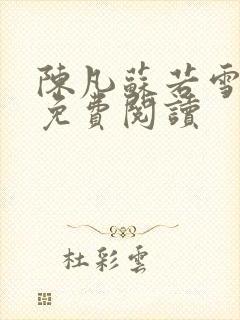 陳凡蘇若雪
免費閱讀
杜彩雲